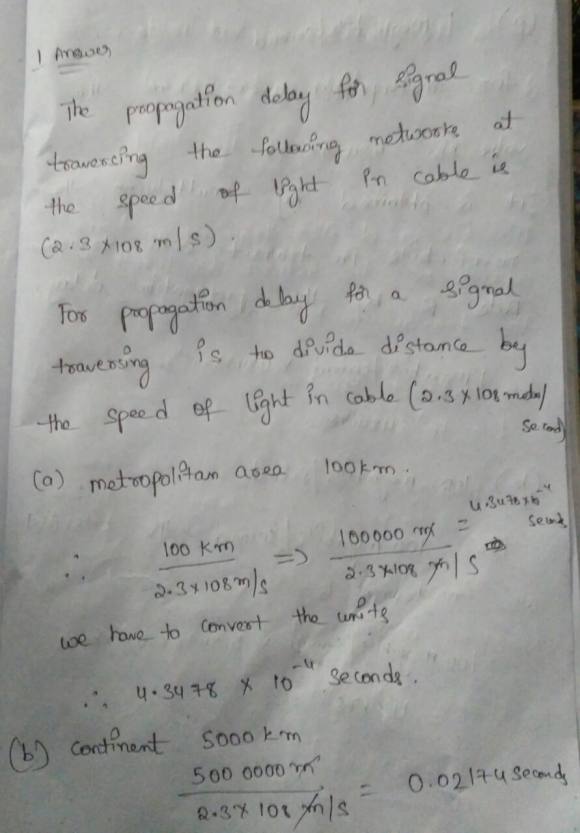 1 Answer
The propagation delay for signal
traversing the following networks at
the speed of light in cable is
(2.3 × 108 m/s).
For propagation delay for a signal
traversing is to divide distance by
the speed of light in cable (2.3 × 108 meter/
second)
(a) metropolitan area 100km.
∴ 100 km / 2.3×108 m/s => 100000 m / 2.3×108 m/s = 4.3478×10⁻⁴ seconds
we have to convert the units
∴ 4.3478 × 10⁻⁴ seconds.
(b) continent 5000 km
500 0000 m / 2.3× 108 m/s = 0.02174 seconds